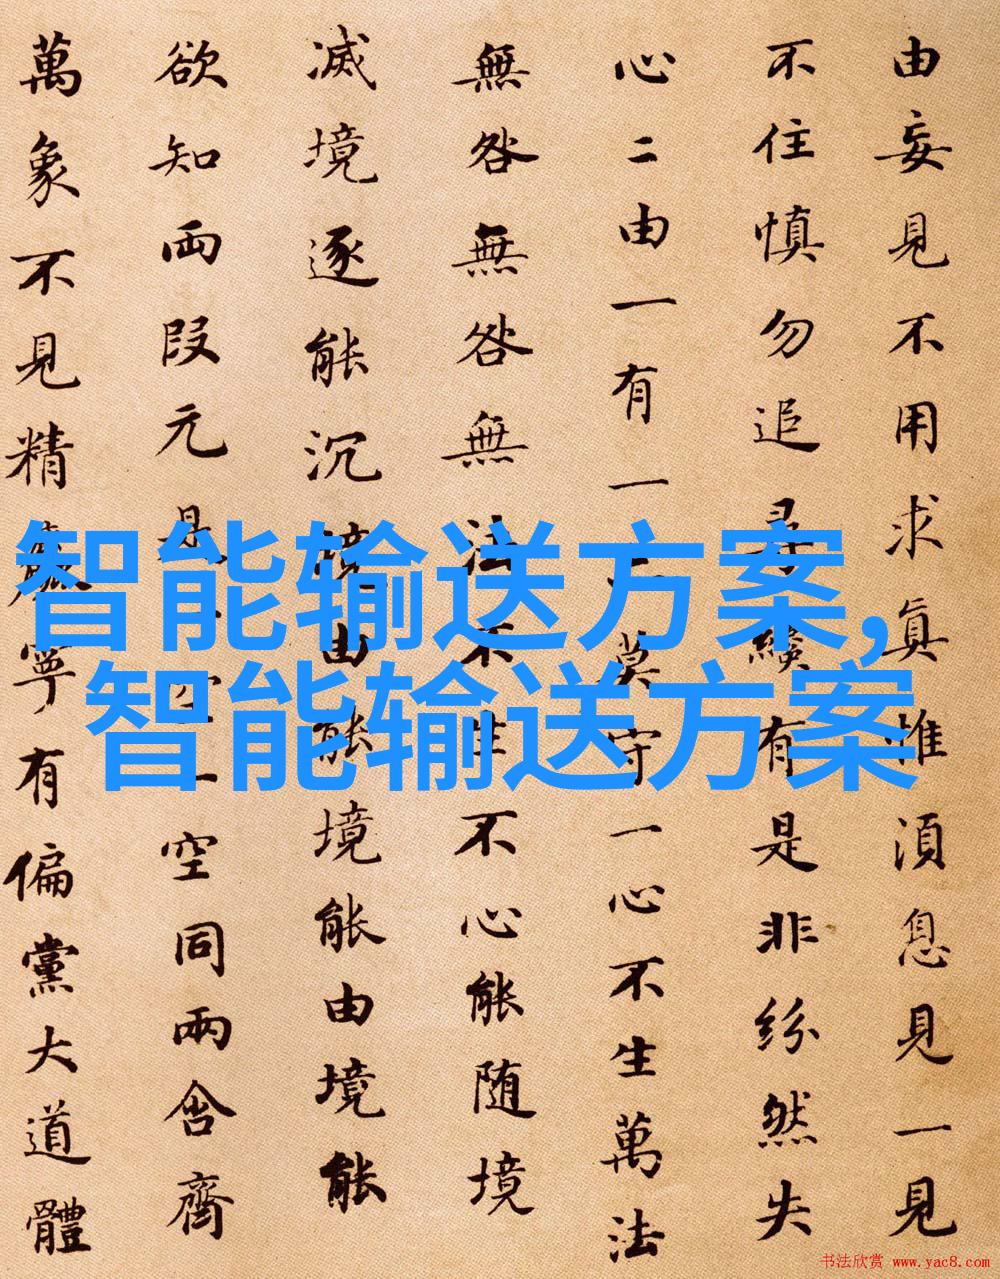 由妄見不用求眞惟湏息見一見
不住慎勿追尋纔有是非紛然失
心二由一有一莫守一心不生萬法
無咎無咎無法不生不心能随境
滅境逐能沉境由能境能由境能
欲知両段元是一空同兩含齊
萬象不見精麁寧有偏黨大道體
智能输送方案,
智能输送方案
书法欣赏 www.yac8.com